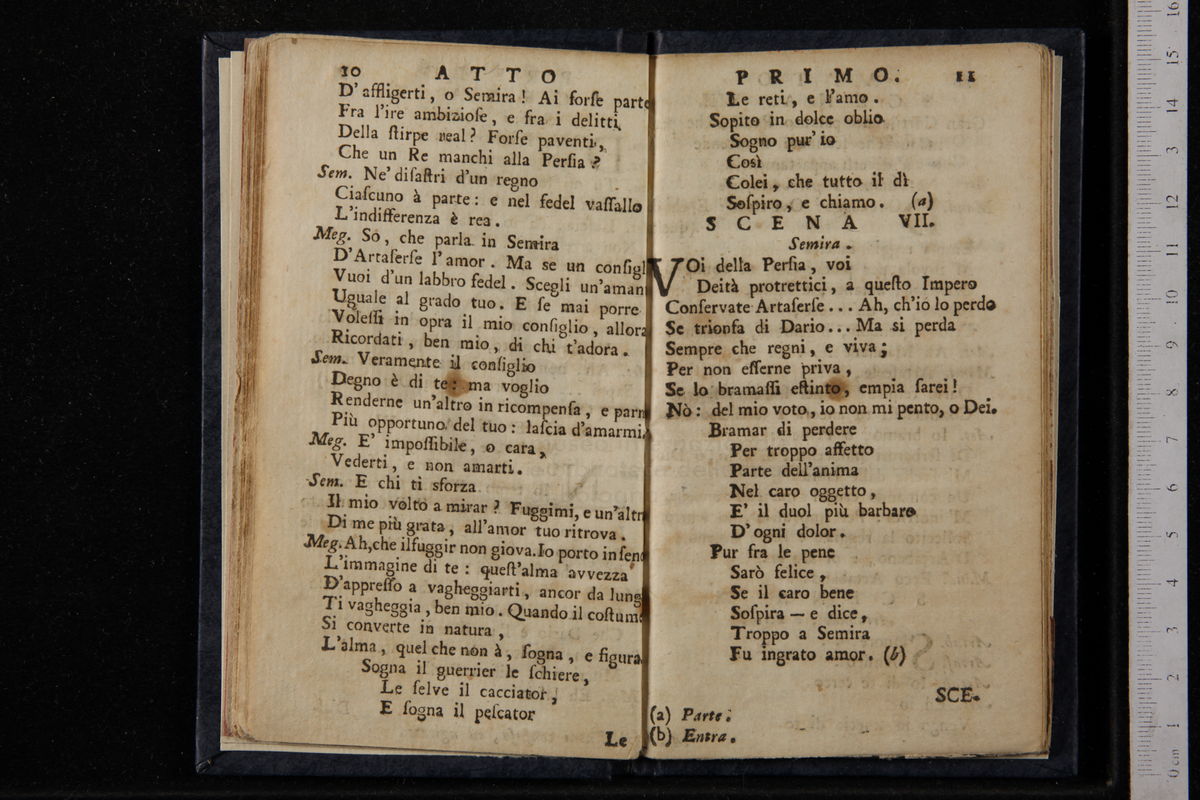 10 ATTO
D'affligerti, o Semira! Ai forſe parte
Fra l'ire ambizioſe, e fra i delitti
Della ſtirpe real? Forſe paventi,
Che un Re manchi alla Perſia?
Sem. Ne' diſaſtri d'un regno
Ciaſcuno à parte: e nel fedel vaſſallo
L'indifferenza è rea.
Meg. Sò, che parla in Semira
D'Artaſerſe l'amor. Ma se un
Vuoi d'un labbro fedel. Scegli
Uguale al grado tuo. E ſe mai porre
Voleſſi in opra il mio conſiglio, allora
Ricordati, ben mio, di chi t'adora.
Sem. Veramente il conſiglio
Degno è di te: ma voglio
Renderne un'altro in ricompenſa, e
Più opportuno del tuo: laſcia d'amarmi.
Meg. E' impoſſibile, o cara,
Vederti, e non amarti.
Sem. E chi ti sforza
Il mio volto a mirar? Fuggimi, e
Di me più grata, all'amor tuo ritrova.
Meg. Ah, che il fuggir non giova. Io porto in
L'immagine di te: queſt'alma avvezza
D'appreſſo a vagheggiarti, ancor da
Ti vagheggia, ben mio. Quando il
Si converte in natura,
L'alma, quel che non à, ſogna, e figura
Sogna il guerrier le ſchiere,
Le ſelve il cacciator,
E ſogna il peſcator
Le
PRIMO. 11
Le reti, e l'amo.
Sopito in dolce oblio
Sogno pur' io
Così
Colei, che tutto il dì
Soſpiro, e chiamo. (a)
SCENA VII.
Semira.
VOi della Perſia, voi
Deità protrettici, a queſto Impero
Conſervate Artaſerſe... Ah, ch'io lo perdo
Se trionfa di Dario... Ma si perda
Sempre che regni, e viva;
Per non eſſerne priva,
Se lo bramaſſi eſtinto, empia ſarei!
Nò: del mio voto, io non mi pento, o Dei.
Bramar di perdere
Per troppo affetto
Parte dell'anima
Nel caro oggetto,
E' il duol più barbaro
D'ogni dolor.
Pur fra le pene
Sarò felice,
Se il caro bene
Soſpira — e dice,
Troppo a Semira
Fu ingrato amor. (b)
SCE-
(a) Parte.
(b) Entra.